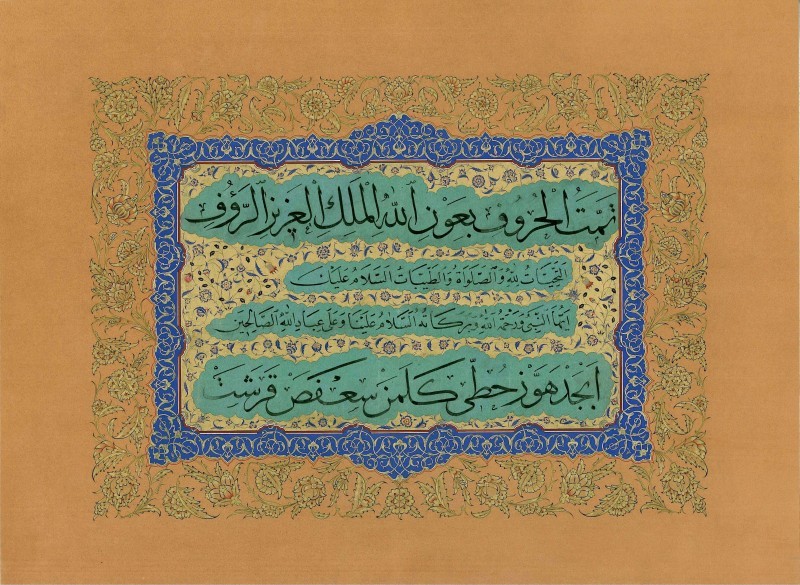 تمت الحروف بعون الله الملك العزيز الرؤوف
التحيات لله والصلواة والطيبات السلام عليك
ايها النبي ورحمة الله وبركاته السلام علينا وعلى عباد الله الصالحين
ابجد هوز حطي كلمن سعفص قرشت